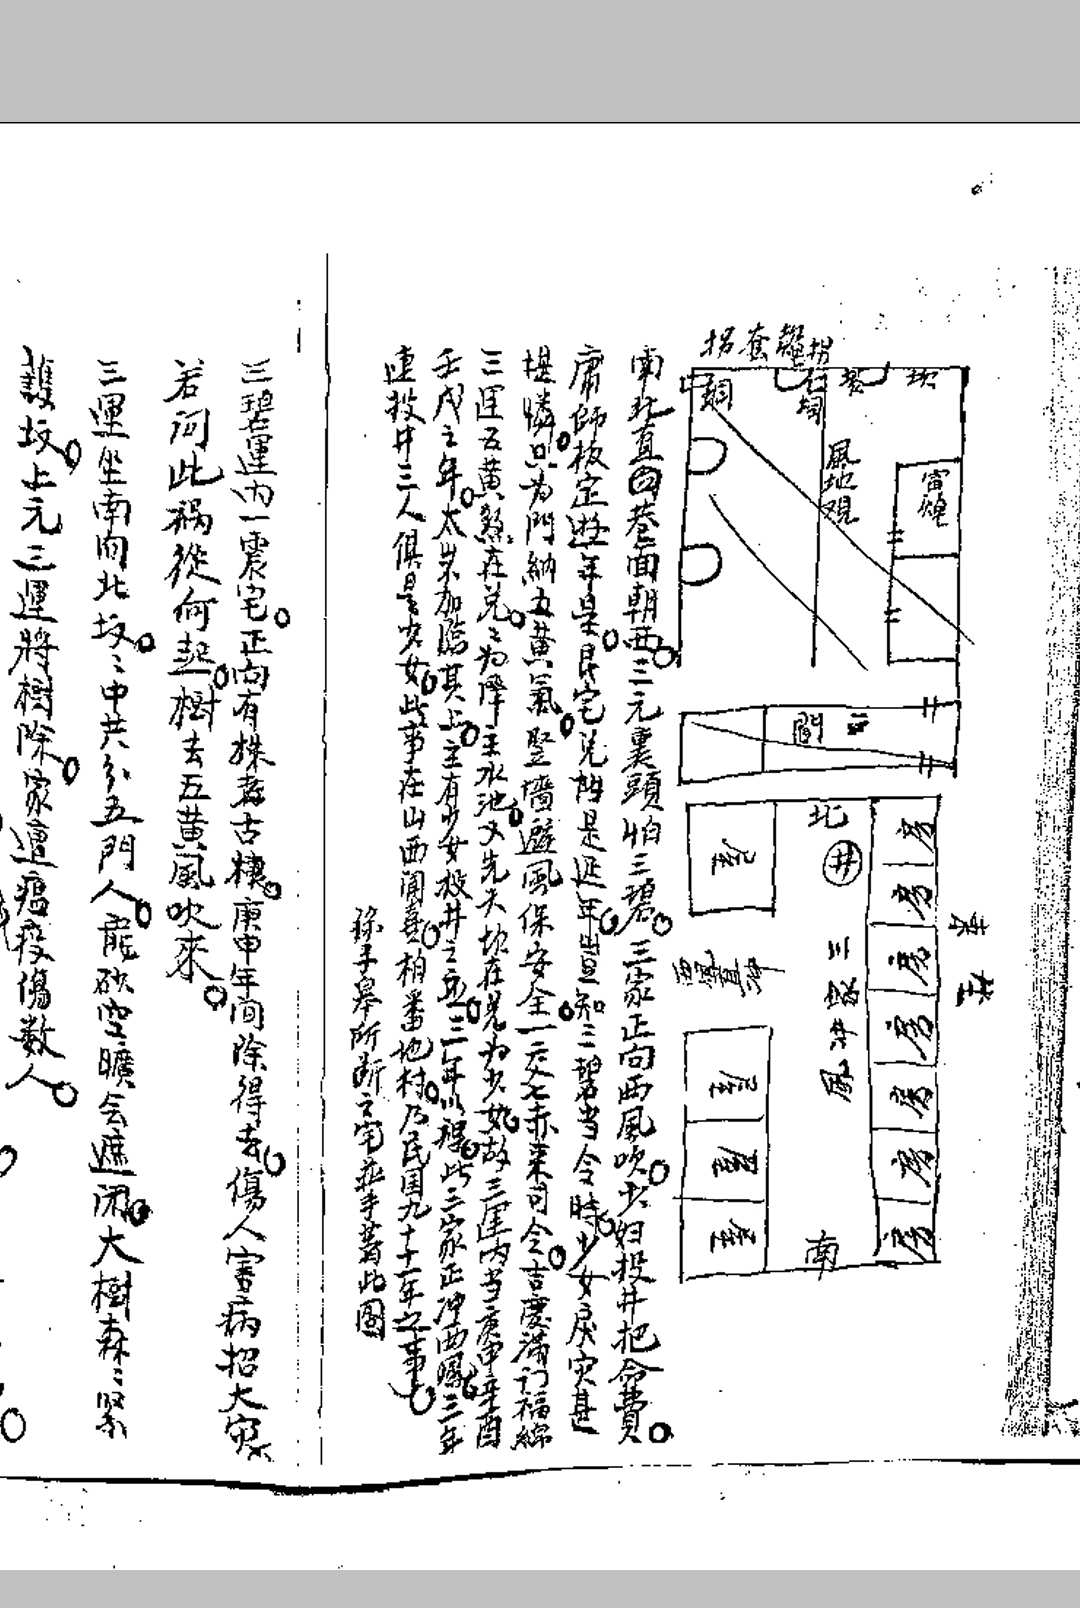 坎
風地观
窑
門
北
井
房
房
房
房
房
房
房
東
坐
三
風
西
屋
屋
屋
屋
南
南北直向巷面朝西三元裏頭怕三碧三家正向西風吹少妇投井把命費
庸師板定遊年是艮宅兑門是延年豈知三碧当令時少女戾灾甚
堪憐只为門納五黄氣竪墻避風保安全一交七赤来司令吉慶满门福綿
三運五黄煞在兑兑为澤主水池又先天坎在兑为少女故三運内当庚申辛酉
壬戌之年太岁加臨其上主有少女投井之立三年以裡此三家正冲西風三年
連投井三人俱是少女此事在山西聞喜柏番地村乃民国九十十一年之事
孫子皋所断之宅並手著此图
三碧運内一震宅正向有株老古槐庚申年间除得去傷人害病招大灾
若问此祸從何起樹去五黄風吹来
三運坐南向北坟坟中共分五門人龍砂空曠会遮闭大樹森森緊
護坟上元三運將樹除家遭瘟疫傷数人